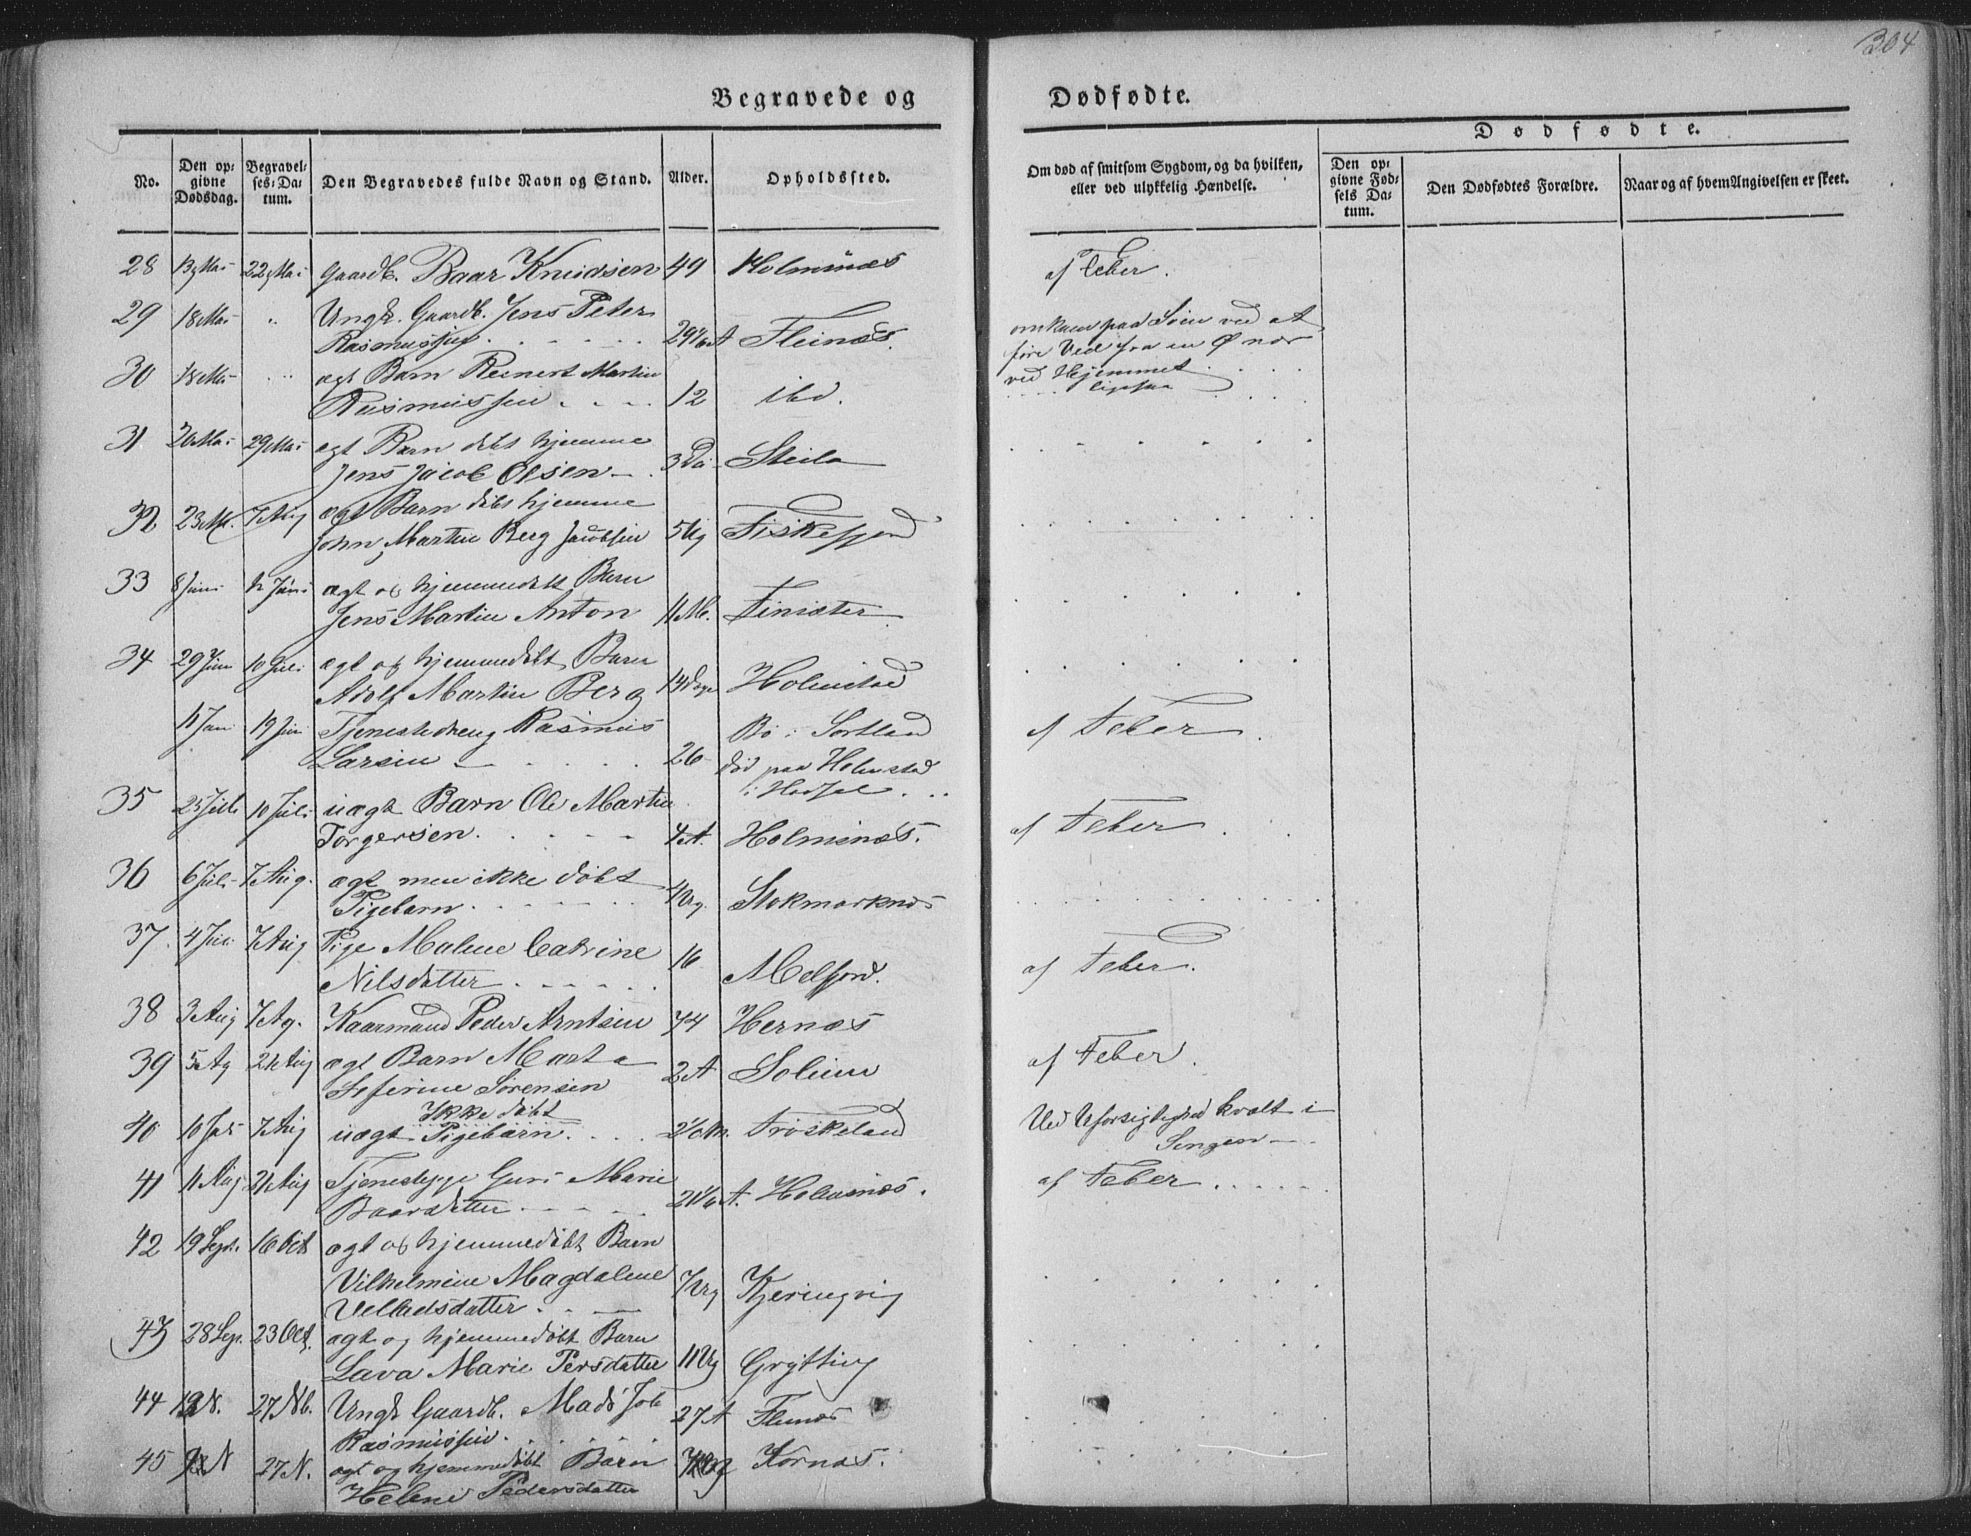 304
Begravede og Dødfødte.
No.
Den opgivne Dødsdag.
Begravelses-Datum.
Den Begravedes fulde Navn og Stand.
Alder.
Opholdssted.
Om død af smitsom Sygdom, og da hvilken, eller ved ulykkelig Hændelse.
Dødfødte.
Den opgivne Fødsels Datum.
Den Dødfødtes Forældre.
Naar og af hvem Angivelsen er skeet.
28 Mai 22 Mai Gaardb. Baar Knudsen 49 Holmnæs af Feber.
29 18 Mai " Ungk. Gaardb. Jens Peter
Rasmussen 29 1/6 A Fleinæs. omkom paa Søen ved at
føre Ved fra en Ø nær
ved Hjemmet
30 18 Mai " ægt Barn Reinert Martin
Rasmussen 12 ibd. ligesaa
31 20 Mai 29 Mai ægt Barn døbt hjemme
Jens Jacob Olsen 3 Da Steila
32 23 7 Aug ægt Barn døbt hjemme
John Martin Berg Jacobsen 5 Ug Fiskefjord
33 8 Juni Juni ægt og hjemmedøbt Barn
Jens Martin Anton 11 M. Finsæter
34 29 Juni 10 Juli ægt og hjemmedøbt Barn
Adolf Martin Berg 14 Dage Holmstad
11 Juni 19 Juni Tjenestedreng Rasmus
Larsen 26 Bø i Sortland af Feber
død paa Holmstad
i Hadsel
35 25 10 Juli uægt Barn Ole Martin
Torgersen. 4 A. Holmnæs. af Feber
36 6 Juli 7 Aug. ægt men ikke døbt
Pigebarn. 4 Ug. Stokmarknæs
37. 4 Juli 7 Aug Pige Malene Catrine
Nilsdatter 16 Melfjord. af Feber.
38 3 Aug 7 Ag. Kaarmand Peder Arntsen 74 Hernæs
39 5 Ag 21 Aug ægt Barn Marta
Seferine Sørensen 2 A Soleim af Feber.
40 10 7 Aug uægt Ikke døbt Pigebarn. Frøskeland Ved Uforsigtighed kvalt i
Sengen
41 11 Aug 21 Aug Tjenestepige Guri Marie
Baarsdatter 21 1/6 A. Holmnæs. af Feber
42 19 Sept. 16 Oct ægt og hjemmedøbt Barn
Vilhelmine Magdalene
7 Ug Kjeringvig
43 28 Sep. 23 Oct. ægt og hjemmedøbt Barn
Lava Marie Persdatter 11 Ug Grytting
44 N. 27 Nb. Ungk Gaardb. Mads Job
Rasmussen. 27 A Flenæs
45 N 27 N. ægt og hjemmedøbt Barn
Helene Pedersdatter Kornæs.